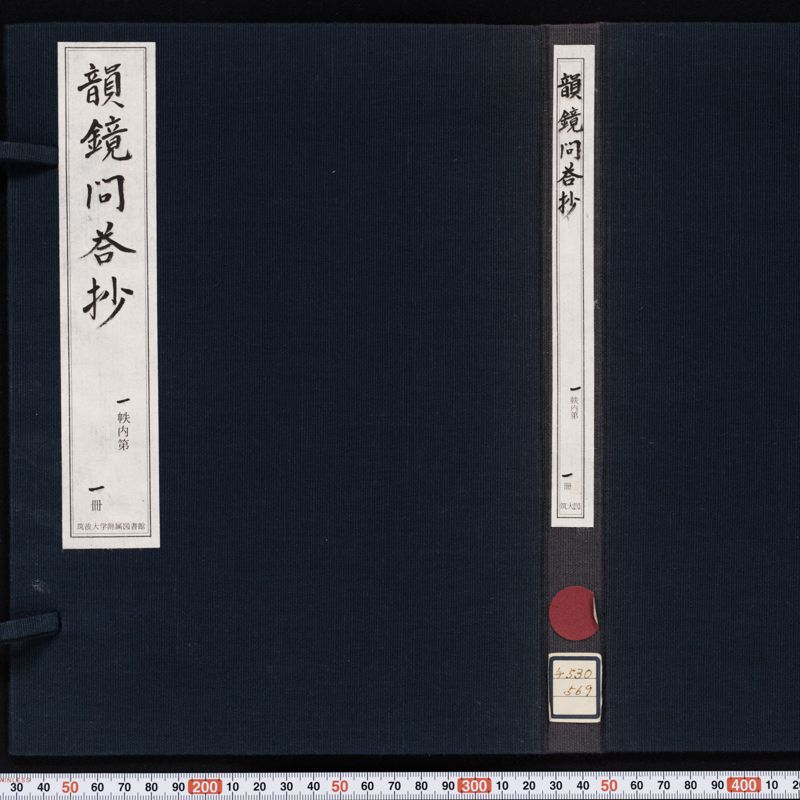 韻鏡问荅抄
一帙内第
一冊
筑波大学附属図書館
韻鏡问荅抄
一帙内第
一冊
筑大図
4530
569
30 40 50 60 70 80 90 200 10 20 30 40 50 60 70 80 90 300 10 20 30 40 50 60 70 80 90 400 10